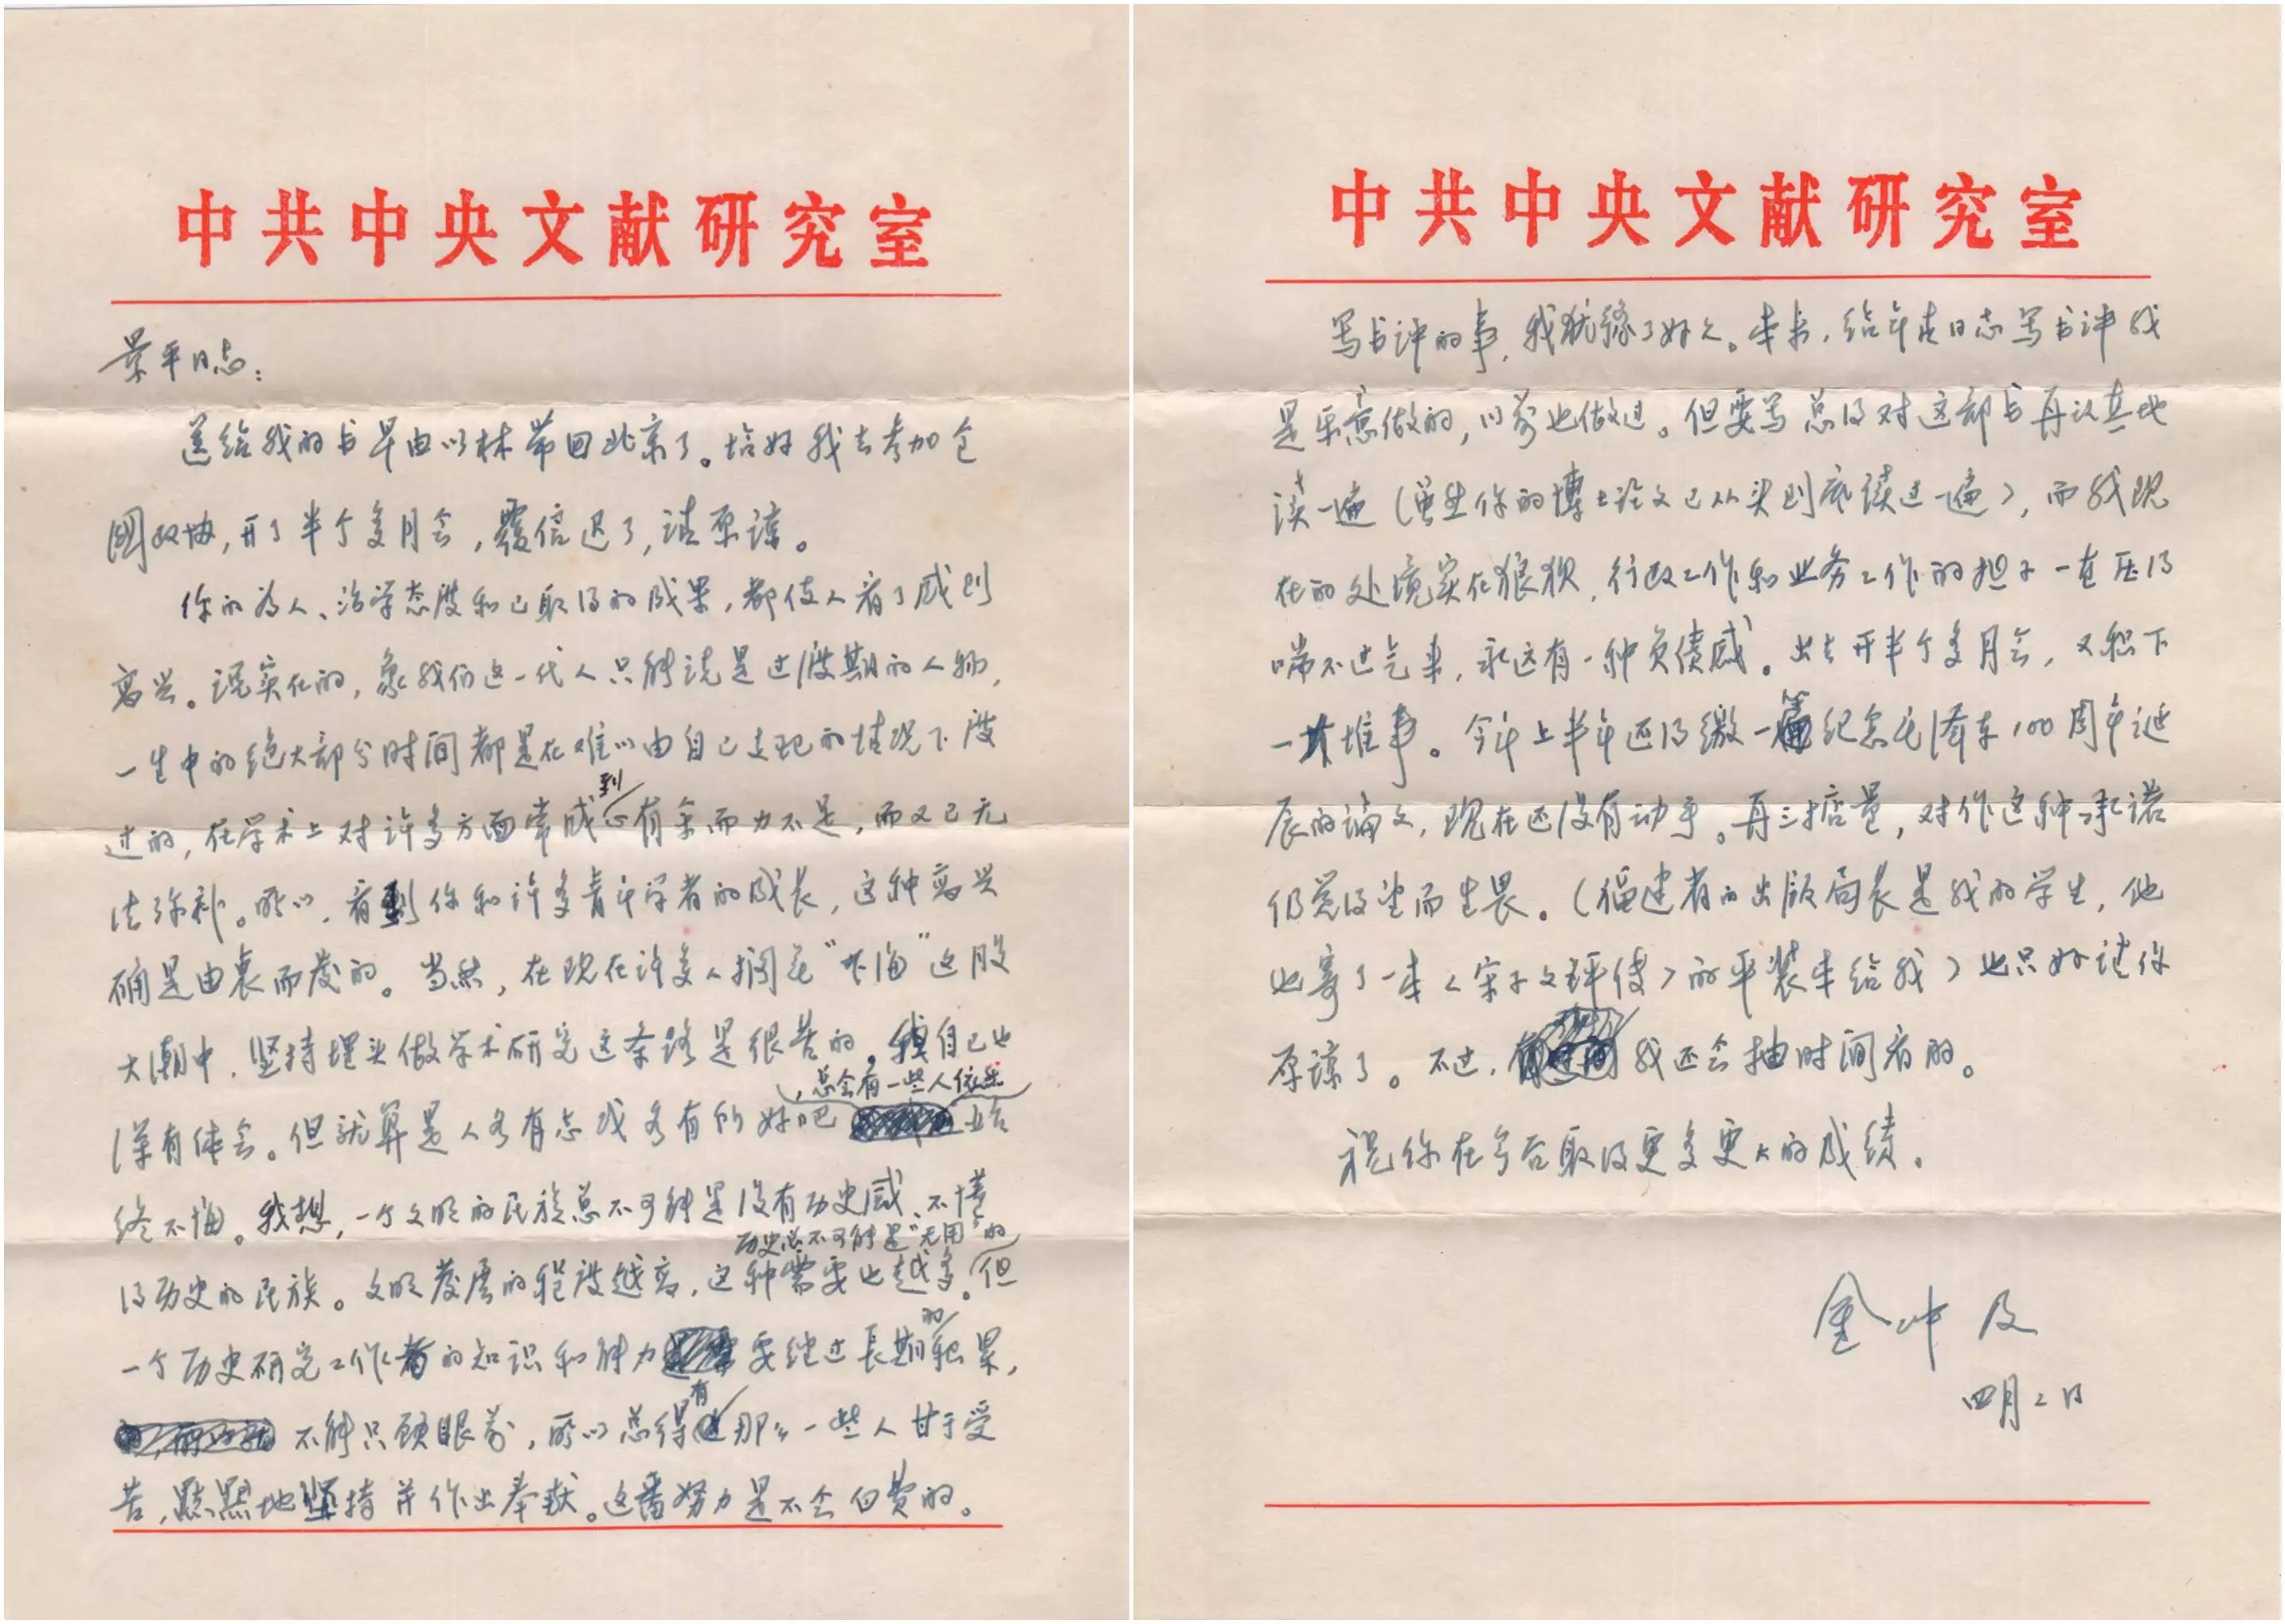 中共中央文献研究室
景平同志：
送给我的书早由以林带回北京了。恰好我去参加全
国政协，开了半个多月会，覆信迟了，请原谅。
你的为人、治学态度和已取得的成果，都使人看了感到
高兴。说实在的，象我们这一代人只能说是过渡期的人物，
一生中的绝大部分时间都是在难以由自己支配的情况下度
过的，在学术上对许多方面常感到心有余而力不足，而又已无
法弥补。所以，看到你和许多青年学者的成长，这种高兴
确是由衷而发的。当然，在现在许多人搁笔“下海”这股
大潮中，坚持埋头做学术研究这条路是很苦的。我自己也
深有体会。但就算是人各有志或各有所好吧，总会有一些人依然始
终不悔。我想，一个文明的民族总不可能是没有历史感、不懂
得历史的民族。文明发展的程度越高，这种需要也越多。历史总不可能是“无用”的但
一个历史研究工作者的知识和能力要经过长期的积累，
不能只顾眼前，所以总得有那么一些人甘于受
苦，默默地坚持并作出奉献。这番努力是不会白费的。
中共中央文献研究室
写书评的事，我犹豫了好久。本来，给年青同志写书评我
是乐意做的，以前也做过。但要写总得对这部书再认真地
读一遍（虽然你的博士论文已从头到底读过一遍），而我现
在的处境实在狼狈，行政工作和业务工作的担子一直压得
喘不过气来，永远有一种负债感。出去开半个多月会，又积下
一大堆事。今年上半年还得缴一篇纪念毛泽东100周年诞
辰的论文，现在还没有动手。再三掂量，对作这种承诺
仍觉得望而生畏。（福建省的出版局长是我的学生，他
也寄了一本〈宋子文评传〉的平装本给我）也只好请你
原谅了。不过，我还会抽时间看的。
祝你在今后取得更多更大的成绩。
金冲及
四月二日